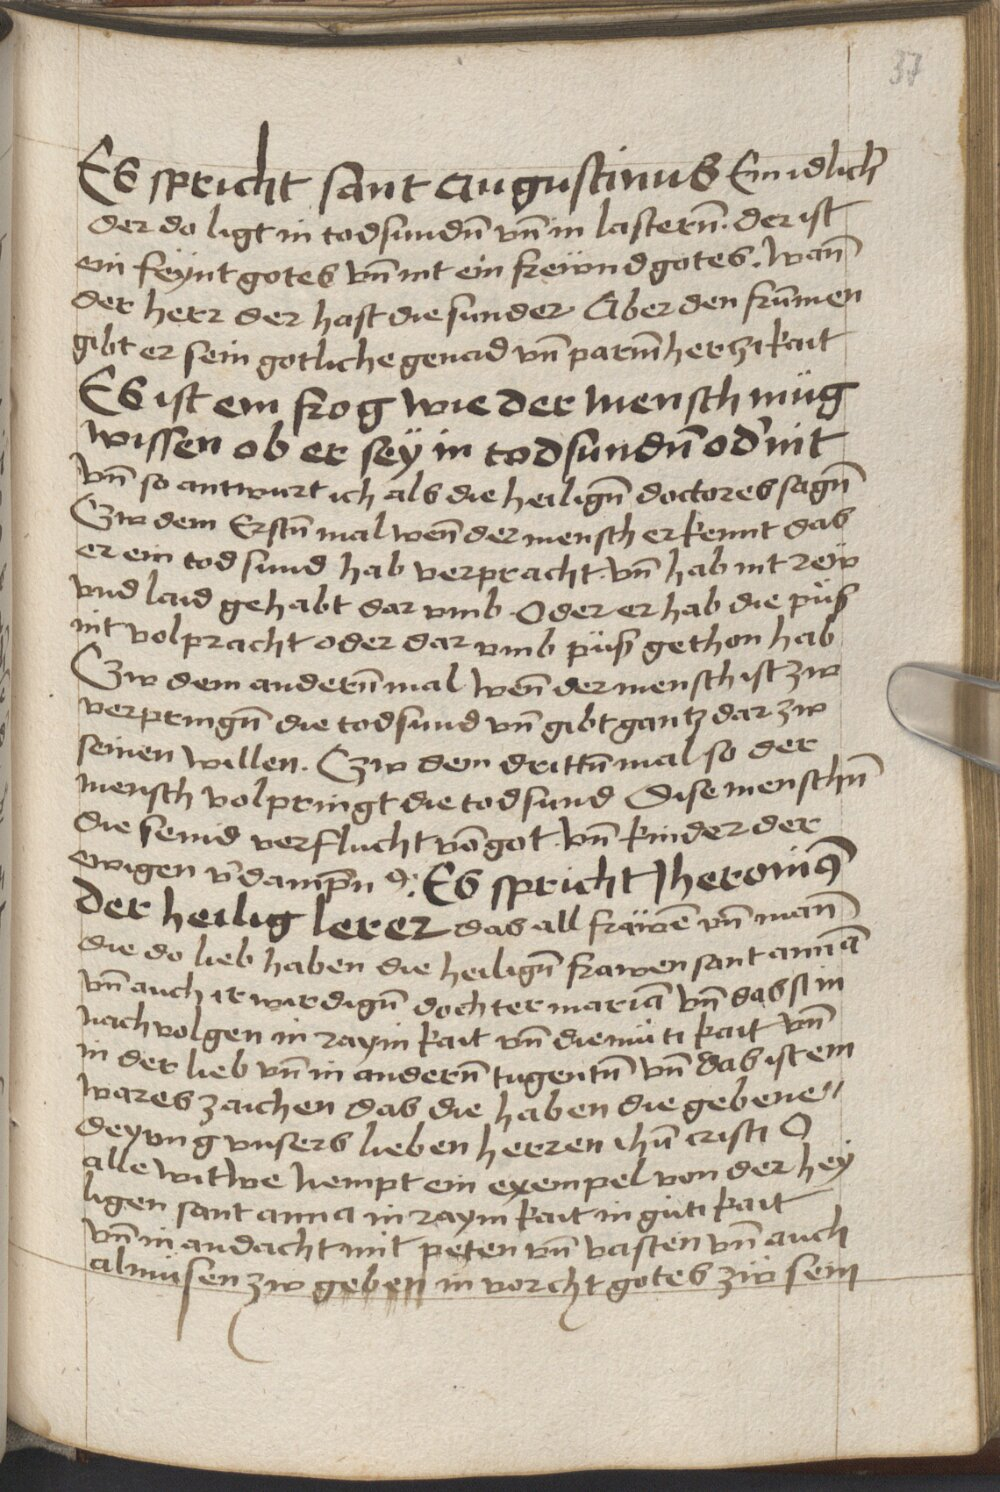 37
Es spricht sant Augustinus Ein idlich̄
der do ligt in todsundn̄ vn̄ in lastern̄. der ist
ein feÿnt gotes vn̄ nit ein freẅnd gotes. Wan̄
der herr der hast die sunder Aber den frūmen
gibt er sein gotliche genad vn̄ parm̄herczikait
Es ist ein frog wie der mensch müg
wissen ob er seÿ in todsundn̄ od' nit
Vn̄ so antwurt ich als die heilign̄ doctores sagn̄
Czw dem Erstn̄ mal wen̄ der mensch erkennt das
er ein tod sund hab verpracht. vn̄ hab nit reẅ
vnd laid gehabt dar vmb Oder er hab die püß
nit volpracht oder dar vmb püß gethon hab
Czw dem andern̄ mal wen̄ der mensch ist zw
verpringn̄ die todsund vn̄ gibt gantz dar zw
seinen willen. Czw dem drittn̄ mal so der
mensch volpringt die todsund Dise menschn̄
die seind verflucht vō got. vn̄ kinder der
ewigen v̄dampn̄ꝰ: Es spricht Jheronimꝰ
der heilig lerer das all fräwē vn̄ man̄
die do lieb haben die heilign̄ frawen sant annā
vn̄ auch ir wirdign̄ dochter mariā vn̄ das si in
nach volgen in raynikait vn̄ diemütikait vn̄
in der lieb vn̄ in andern̄ tugentn̄ vn̄ das ist ein
wares zaichen das die haben die gebene〃
deyung vnsers lieben herren ihū cristi O
alle witwe nempt ein exempel von der heÿ
ligen sant anna in raynikait in gütikait
vn̄ in andacht mit peten vn̄ vasten vn̄ auch
almüsen zw geben in vorcht gotes zw sein